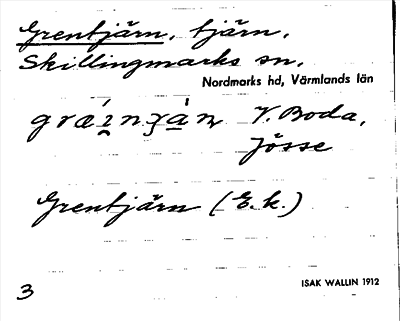 Grentjärn, tjärn,
Skillingmarks sn,
Nordmarks hd, Värmlands län
V. Boda,
Jösse
Grentjärn (E.k.)
3
ISAK WALLIN 1912